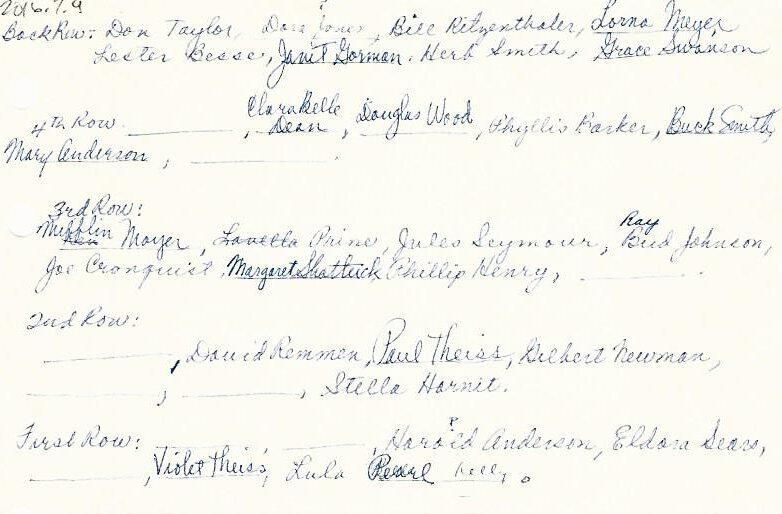 2016.7.9
Back Row: Don Taylor, Dora Jones, Bill Ritzenthaler, Lorna Meyer,
Lester Besse, Janit Gorman, Herb Smith, Grace Swanson
4th Row ________, Clara Belle Dean, Douglas Wood, Phyllis Barker, Buck Smith,
Mary Anderson, ________.
3rd Row:
Mifflin Moyer, Lavella Prine, Jules Seymour, Ray Bud Johnson,
Joe Cronquist, Margaret Shattuck, Phillip Henry, ________.
2nd Row:
________, David Remmen, Paul Theiss, Gilbert Newman,
________, ________, Stella Harnit.
First Row: ________, ________, Harold Anderson, Eldora Sears,
________, Violet Theiss, Lula Pearl Kelly.